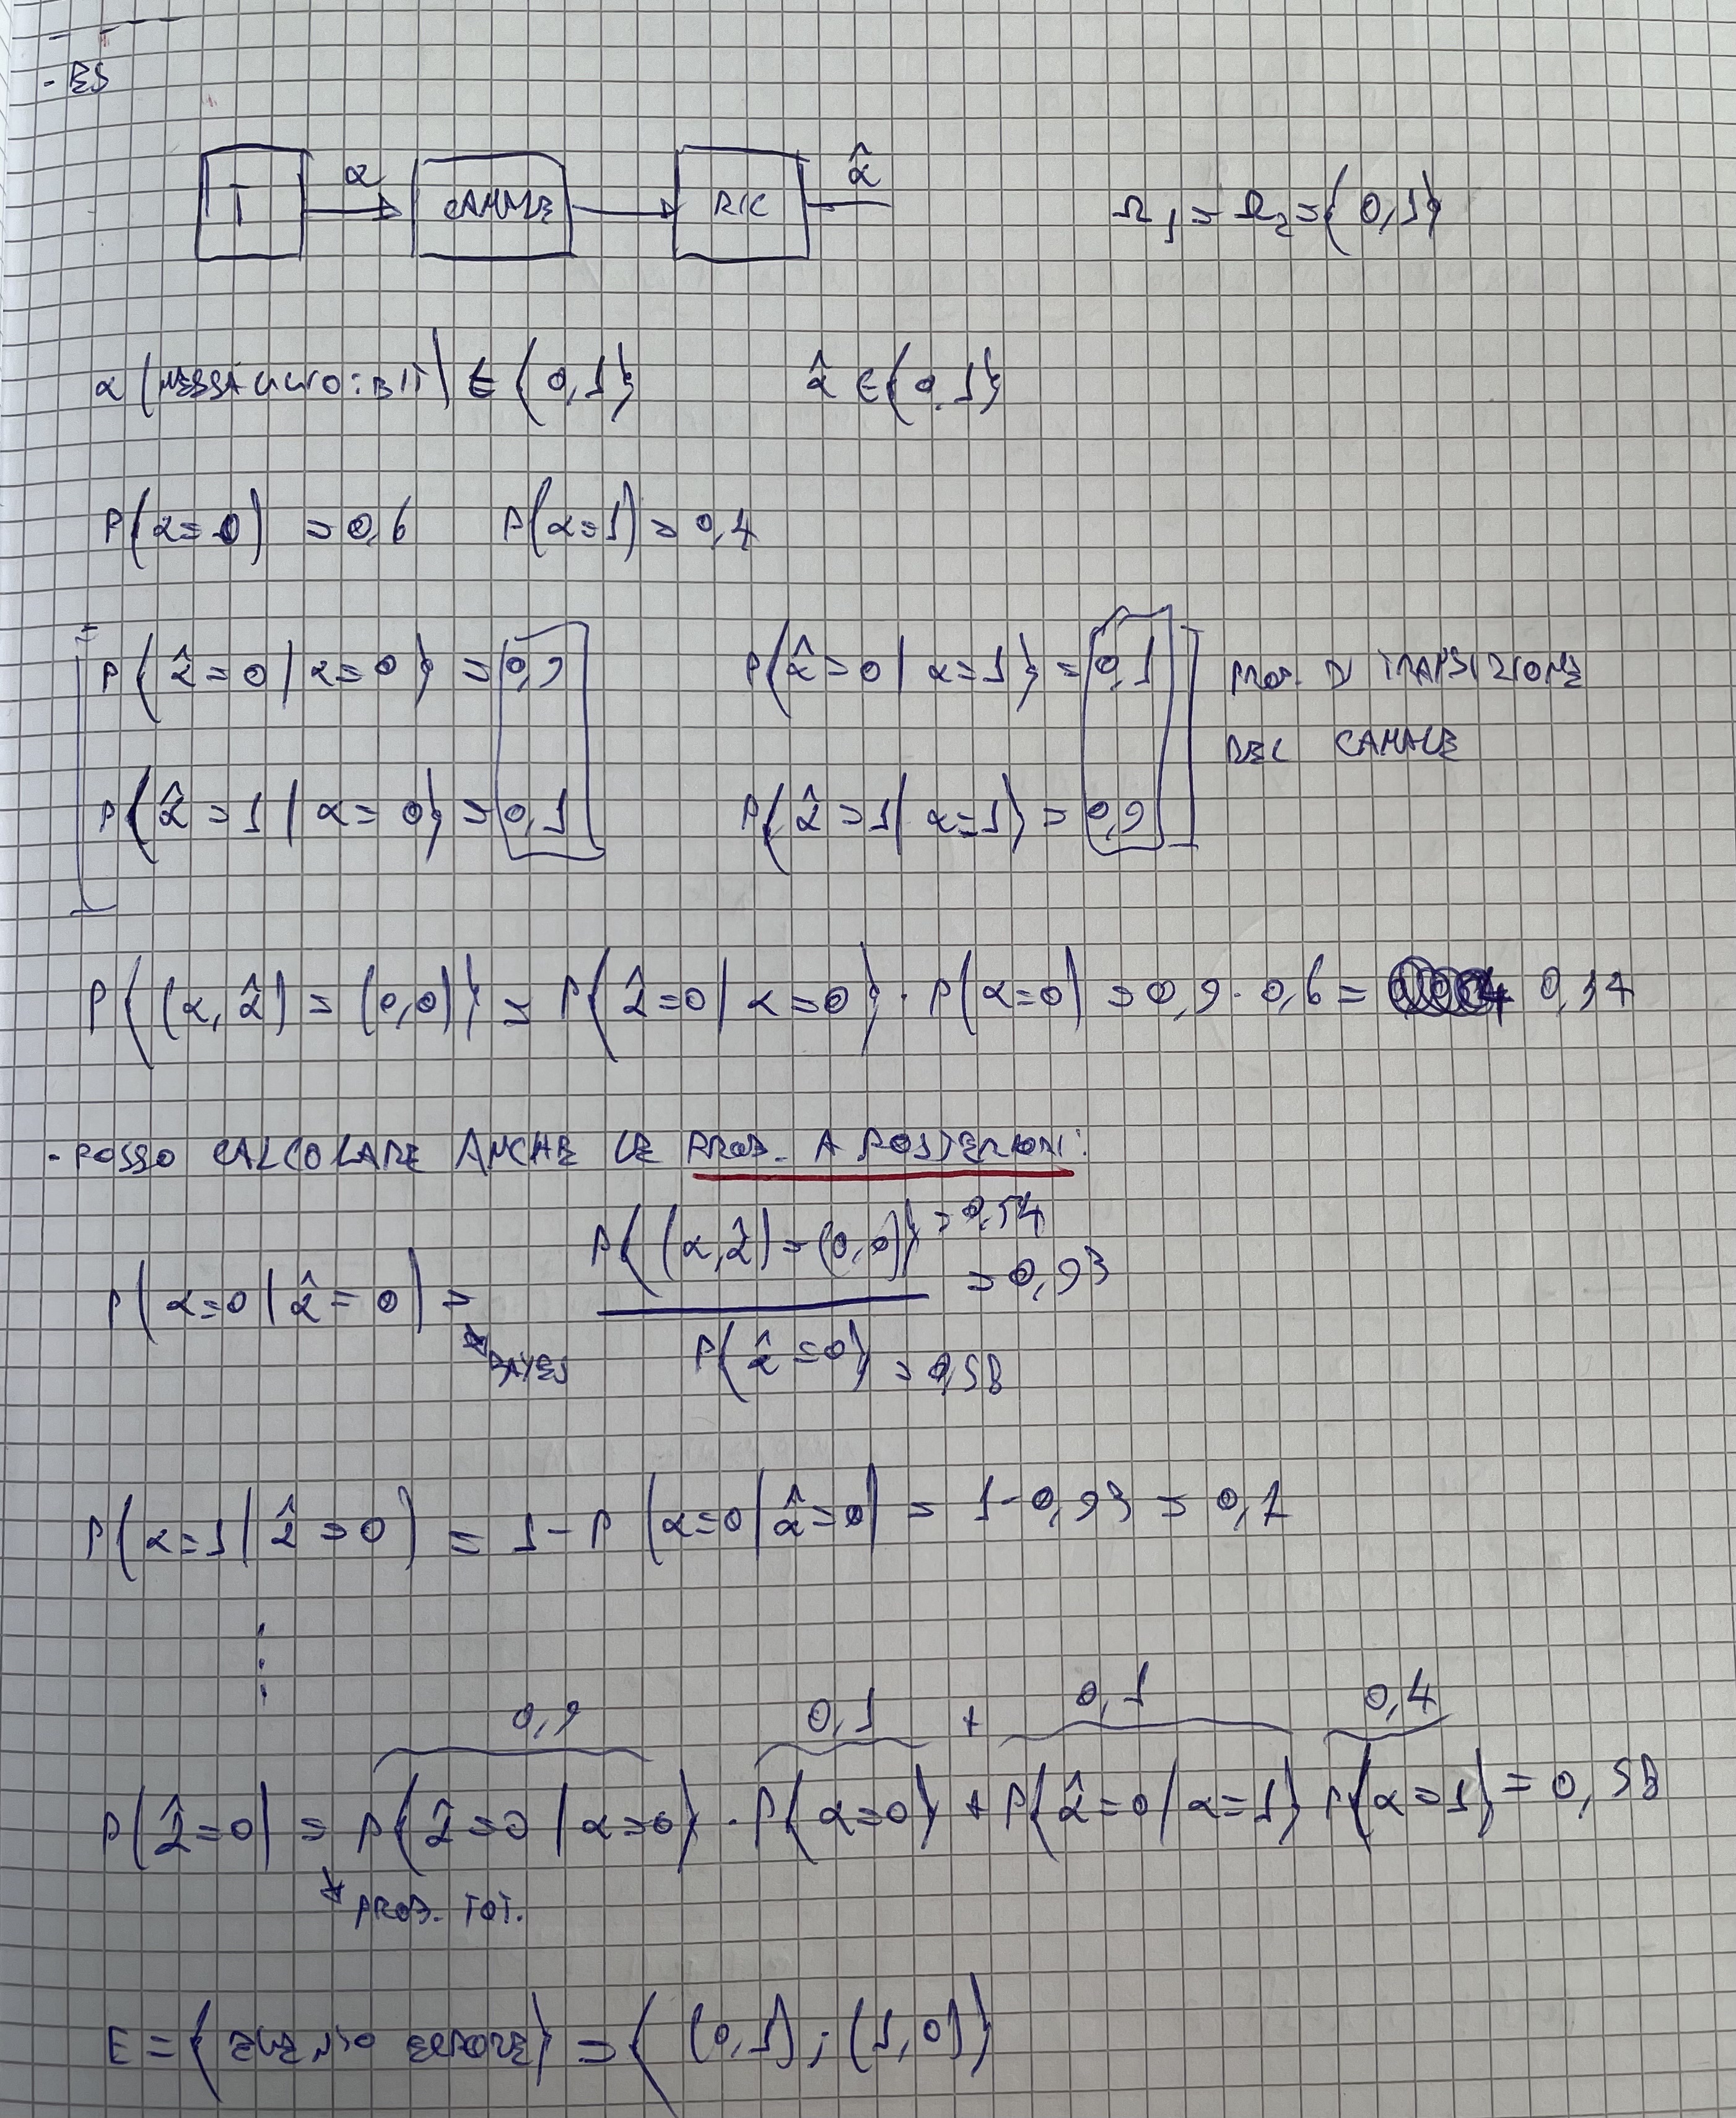 - ES
T α CANALE RIC α̂ Ω1 = Ω2 = {0,1}
α (MESSAGGIO: BIT) ∈ {0,1} α̂ ∈ {0,1}
P(α=0) = 0,6 P(α=1) = 0,4
P{α̂=0 | α=0} = 0,9 P{α̂=0 | α=1} = 0,1 PROB. DI TRANSIZIONE
DEL CANALE
P{α̂=1 | α=0} = 0,1 P{α̂=1 | α=1} = 0,9
P{(α,α̂) = (0,0)} = P{α̂=0 | α=0} · P(α=0) = 0,9 · 0,6 = 0,54
- POSSO CALCOLARE ANCHE LE PROB. A POSTERIORI:
P{(α,α̂) = (0,0)} = 0,54
P(α=0 | α̂=0) = = 0,93
BAYES P{α̂=0} = 0,58
P(α=1 | α̂=0) = 1 - P(α=0 | α̂=0) = 1 - 0,93 = 0,7
0,9 0,1 + 0,1 0,4
P(α̂=0) = P{α̂=0 | α=0} · P{α=0} + P{α̂=0 | α=1} P{α=1} = 0,58
PROB. TOT.
E = {EVENTO ERRORE} = {(0,1) ; (1,0)}